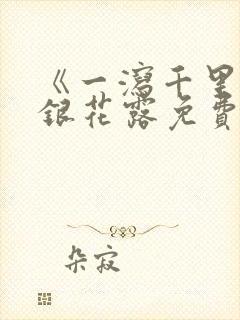 《一瀉千里
銀花露免費
朵寂